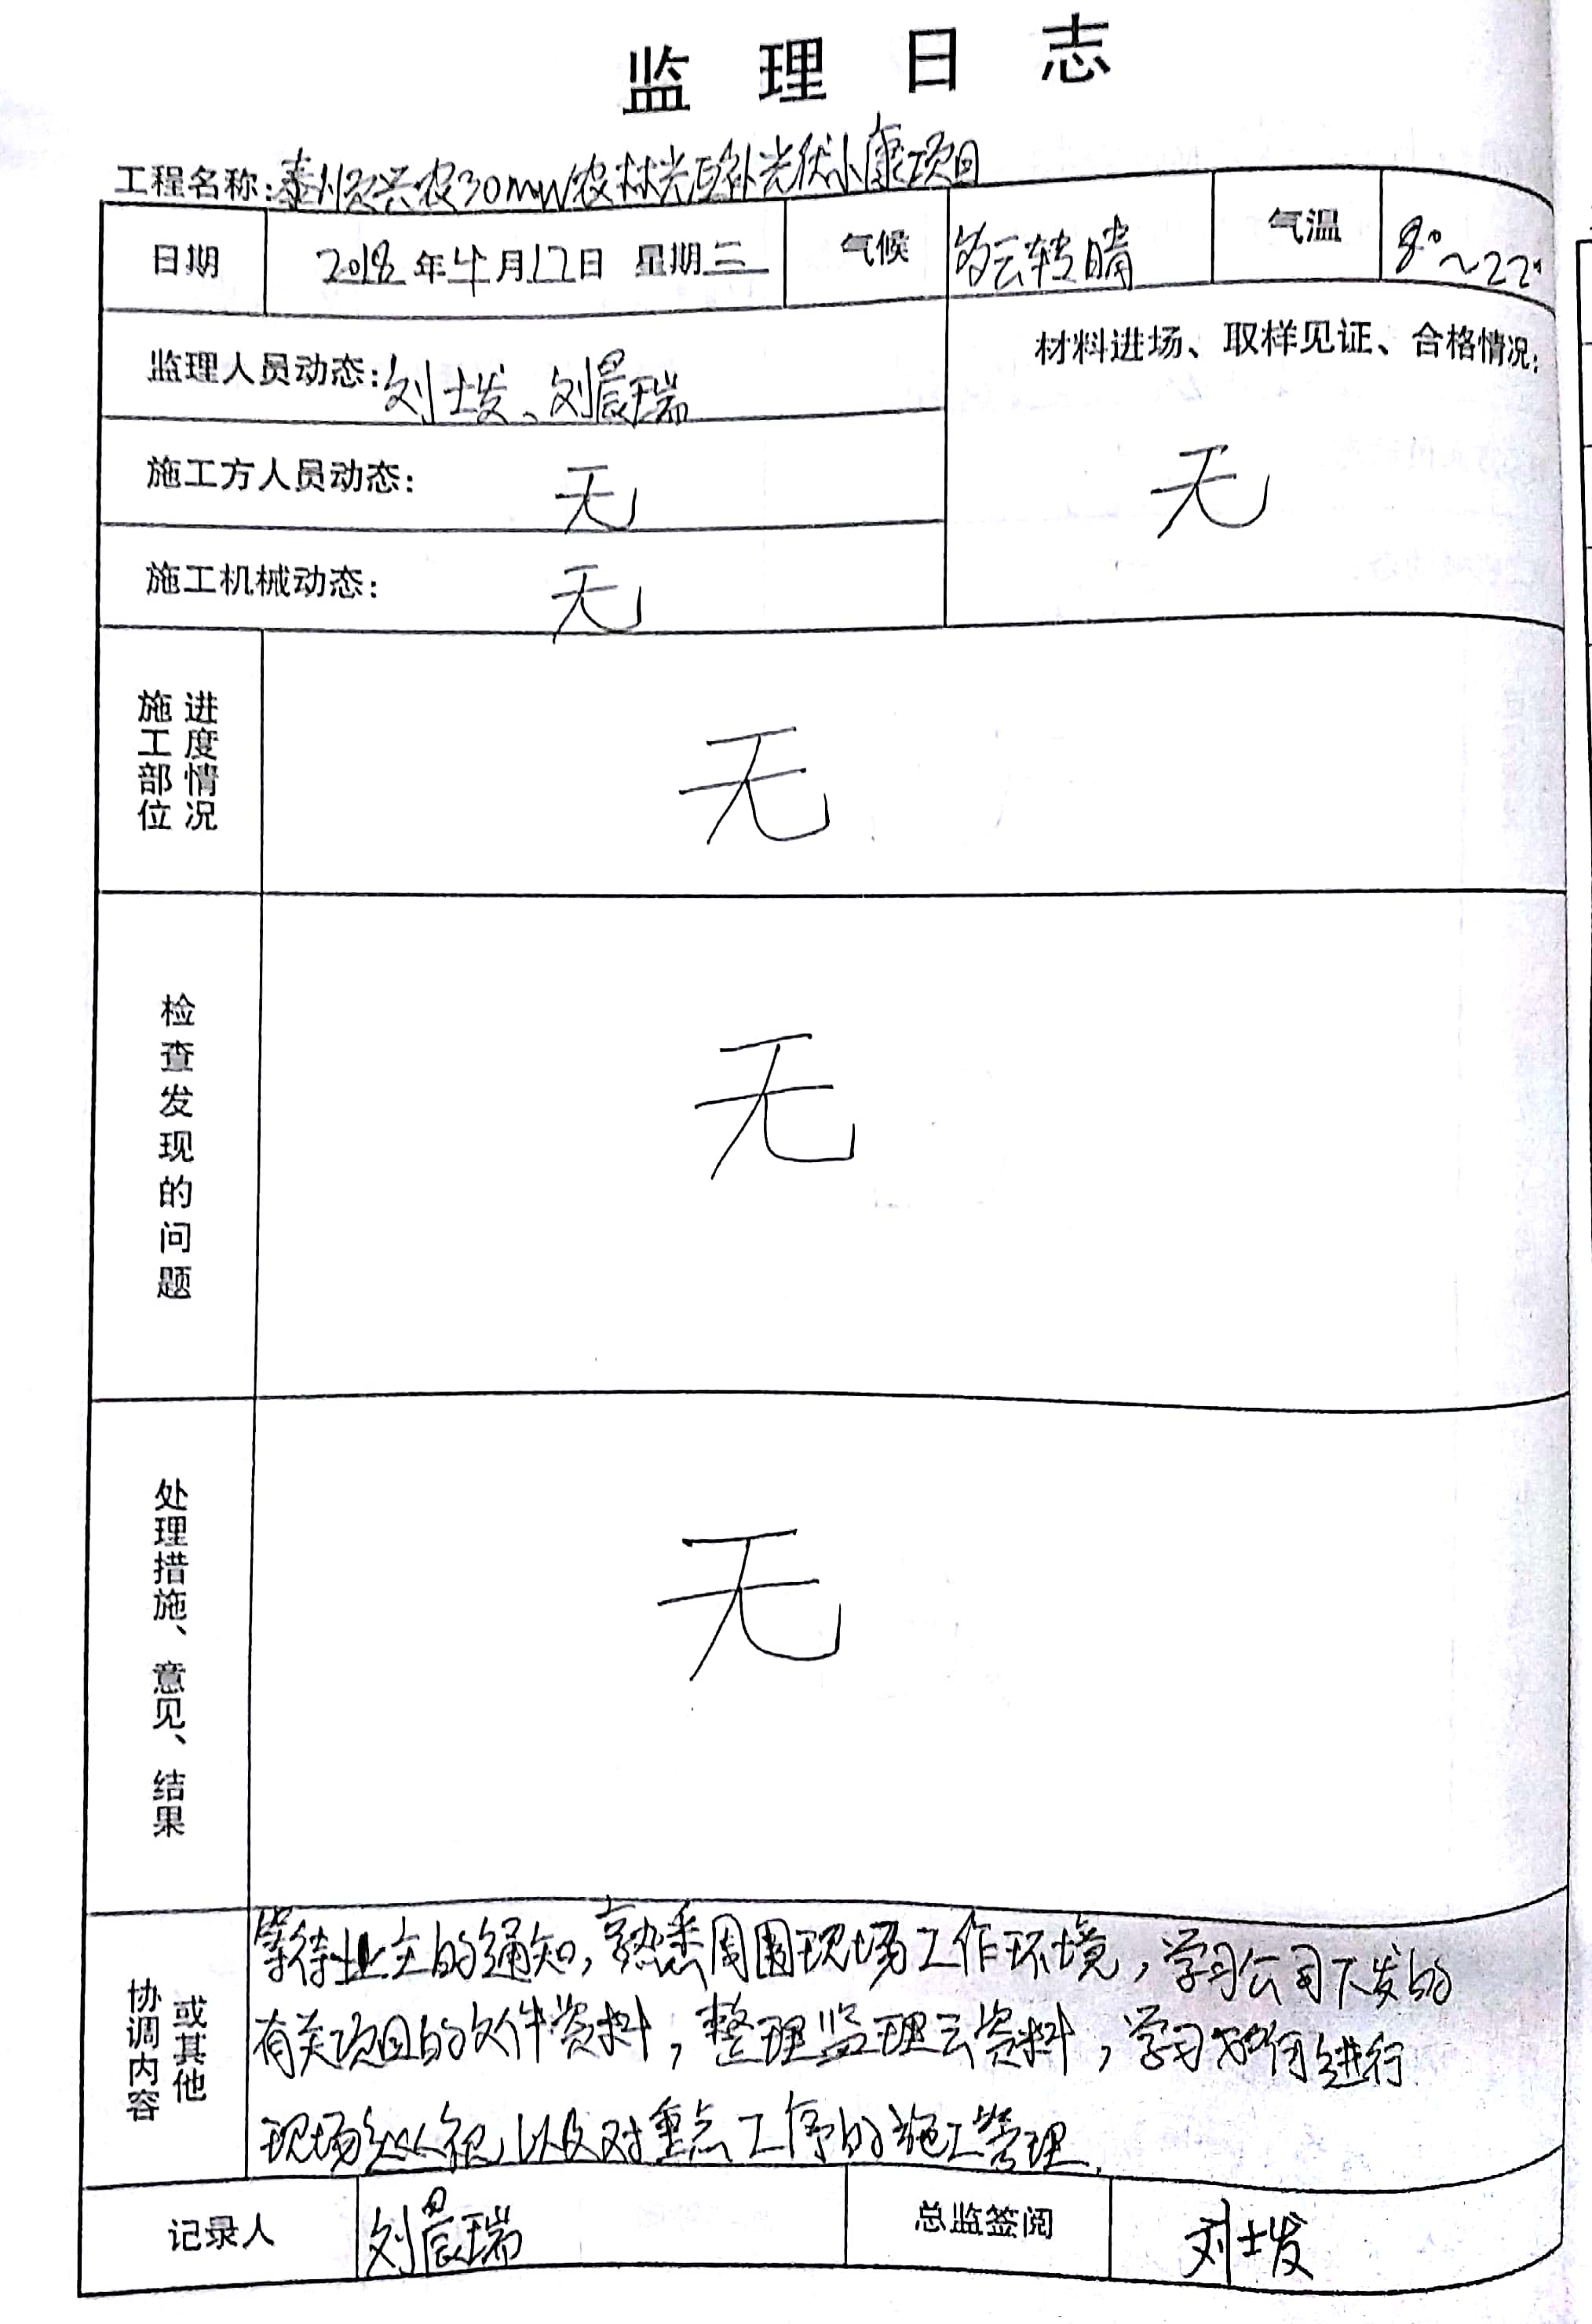 监理日志
工程名称:泰州贸兴农30mw农林光互补光伏小康项目
日期 2018年4月12日 星期三 气候 多云转晴 气温 8°~22°
监理人员动态:刘士发、刘晨瑞
材料进场、取样见证、合格情况:
无
施工方人员动态: 无
施工机械动态: 无
施工部位
进度情况
无
检查发现的问题
无
处理措施、意见、结果
无
协调内容
或其他
等待业主的通知,熟悉周围现场工作环境,学习公司下发的
有关项目的文件资料,整理监理云资料,学习如何进行
现场巡视,以及对重点工序的施工管理.
记录人 刘晨瑞 总监签阅 刘士发